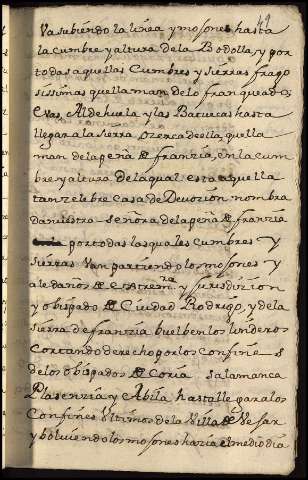 49
Va subiendo la linea y mojones hasta
la cumbre y altura de la Bodolla, y por
todas aquellas Cumbres y sierras frago
sissimas que llaman de lo franqueado,
Evas, Aldehuela y las Batuecas hasta
llegar a la sierra, o zerca de ella, que lla
man de la peña de franzia, en la cum
bre y altura de la qual esta aquella
tan zelebre Casa de Devozion nombra
da nuestra señora de la peña de franzia
por todas las quales cumbres y
sierras van partiendo los mojones y
aledaños de Estremra y jurisdizion
y obispado de Ciudad Rodrigo, y de la
sierra de franzia buelben los linderos
Cortando derecho por los Confines
de los obispados de Coria Salamanca
Plasenzia y Abila hasta llegar a los
Confines Ultimos de la Villa de Vejar
y bolviendo los mojones hazia el medio dia